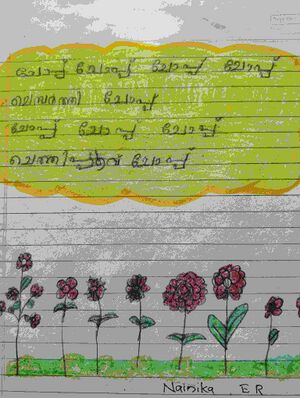 ചോപ്പ് ചോപ്പ് ചോപ്പ് ചോപ്പ്
ചെമ്പരത്തി ചോപ്പ്
ചോപ്പ് ചോപ്പ് ചോപ്പ്
ചെത്തിപ്പൂവ് ചോപ്പ്
Nainika E R